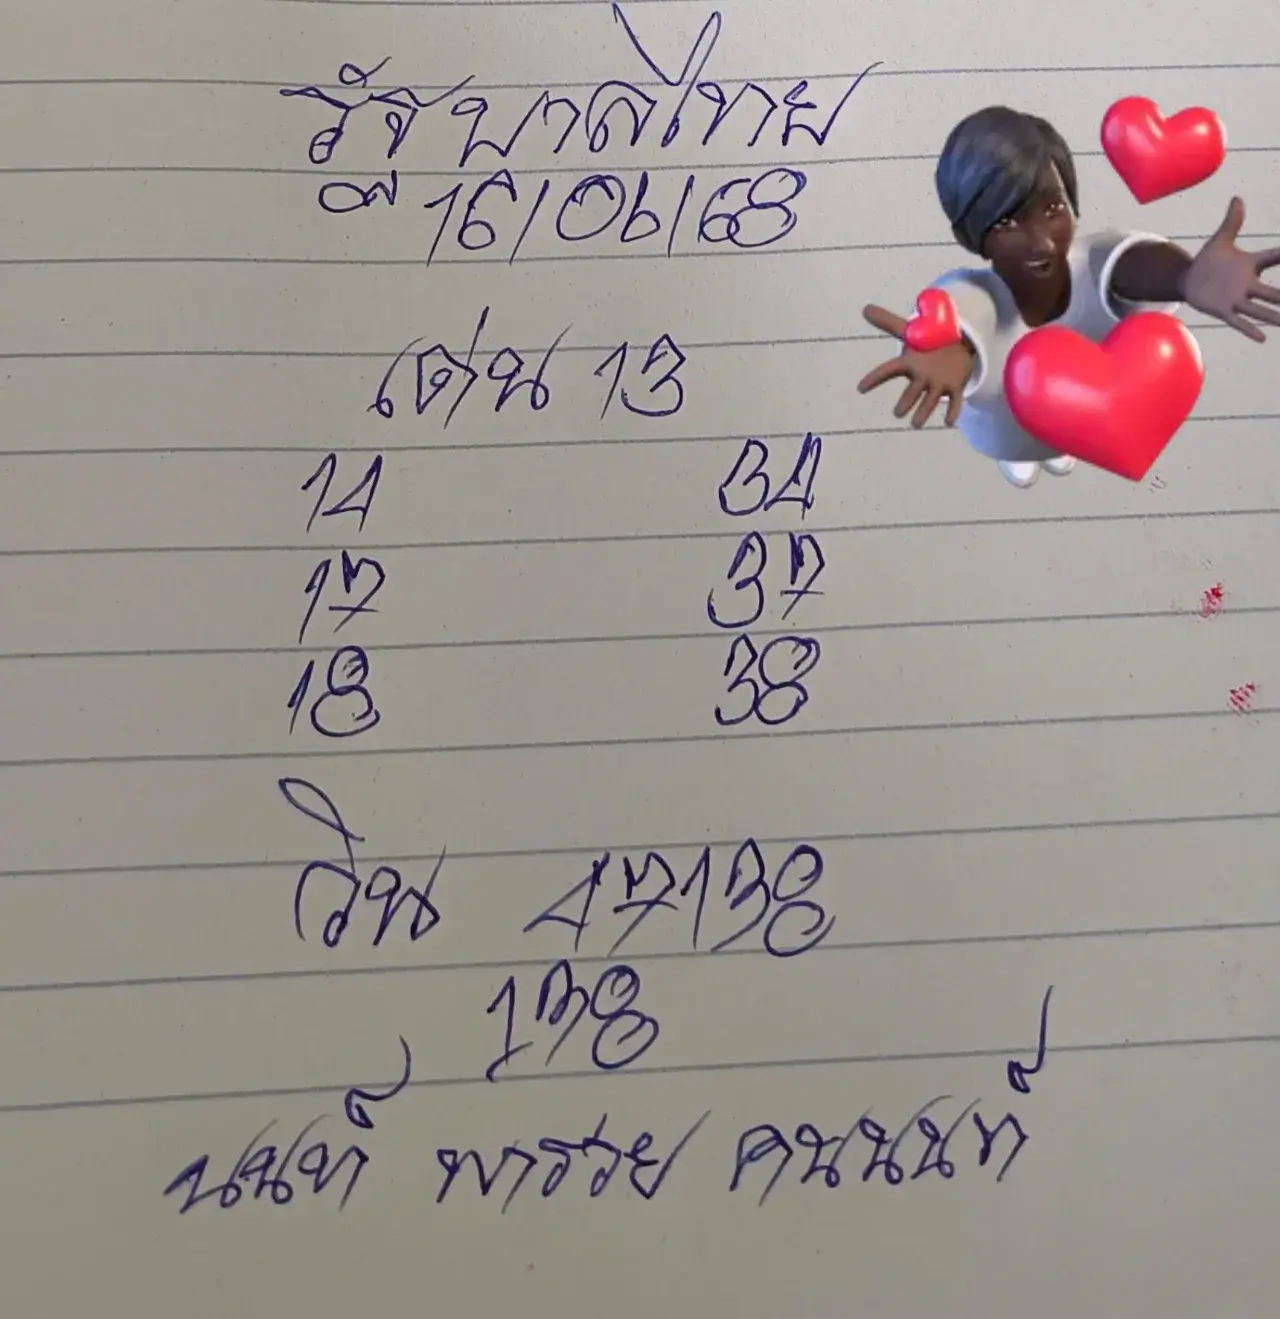 รัฐบาลไทย
ที่ 16/06/68
เด่น 13
14 34
17 37
18 38
วิน 47138
138
นนท์ พารวย คนนนท์